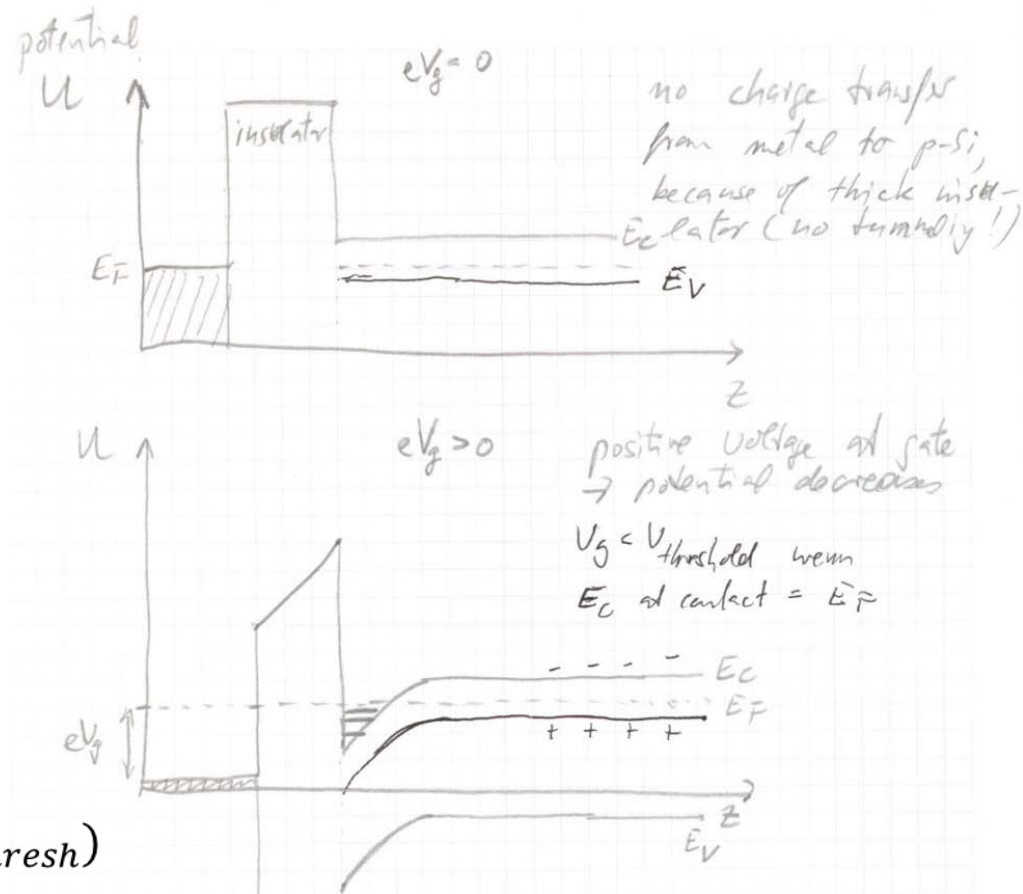 potential
U
eV_g = 0
insulator
no charge transfer
from metal to p-Si,
because of thick insu-
lator (no tunneling!)
E_c
E_F
E_V
z
U
eV_g > 0
positive voltage at gate
→ potential decreases
V_g < V_threshold wenn
E_c at contact = E_F
- - - -
E_C
E_F
+ + + +
eV_g
z
E_V
resh)